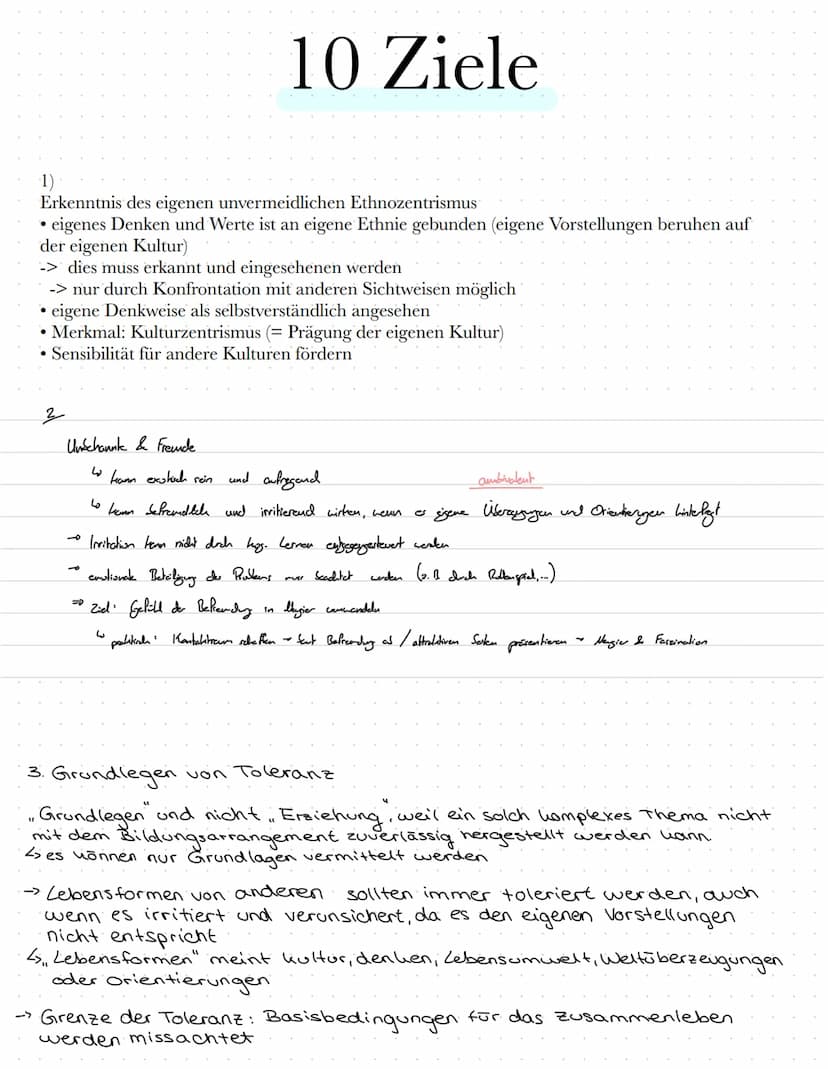 10 Ziele
1)
Erkenntnis des eigenen unvermeidlichen Ethnozentrismus
• eigenes Denken und Werte ist an eigene Ethnie gebunden (eigene Vorstellungen beruhen auf
der eigenen Kultur)
-> dies muss erkannt und eingesehenen werden
-> nur durch Konfrontation mit anderen Sichtweisen möglich
• eigene Denkweise als selbstverständlich angesehen
• Merkmal: Kulturzentrismus (= Prägung der eigenen Kultur)
• Sensibilität für andere Kulturen fördern
2
& Fremde
↳ kann exotisch sein und aufregend
ambivalent
↳ kann befremdlich und irritierend wirken, wenn es eigene Überzeugungen und Orientierungen hinterfragt
→ Irritation kann nicht durch kog. Lernen entgegengesteuert werden
→ emotionale Beteiligung des Problems muss beachtet werden (z.B. durch Rollenspiel,...)
⇒ Ziel: Gefühl der Befremdung in Magie umwandeln
↳ Kontaktraum schaffen → statt Befremdung als / attraktiven Seiten präsentieren → Magie & Faszination
3. Grundlegen von Toleranz
„Grundlegen" und nicht „Erziehung", weil ein solch komplexes Thema nicht
mit dem Bildungsarrangement zuverlässig hergestellt werden kann.
↳ es können nur Grundlagen vermittelt werden
→ Lebensformen von anderen sollten immer toleriert werden, auch
wenn es irritiert und verunsichert, da es den eigenen Vorstellungen
nicht entspricht
↳ „Lebensformen" meint Kultur, denken, Lebensumwelt, Weltüberzeugungen
oder Orientierungen
→ Grenze der Toleranz: Basisbedingungen für das zusammenleben
werden missachtet